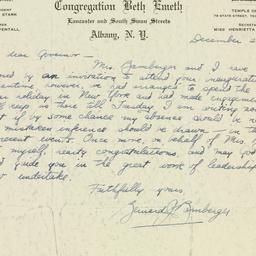 Congregation Beth Emeth
Lancaster and South Swan Streets
Albany, N. Y.
STARK
TEMPLE
78 STATE STREET, TEL
SECRETARY
MISS HENRIETTA
December 2
dear Governor —
Mrs. Bamberger and I have
by an invitation to attend your inauguration
we had arranged to spend the
holiday in New York and made engagements
keep us there till Tuesday. I am writing
if by some chance my absence should be
mistaken inference should be drawn in the
recent events. Once more, on behalf of Mrs.
myself, hearty congratulations, and may God
guide you in the great work of leadership
undertake.
Faithfully yours,
Bernard J. Bamberger